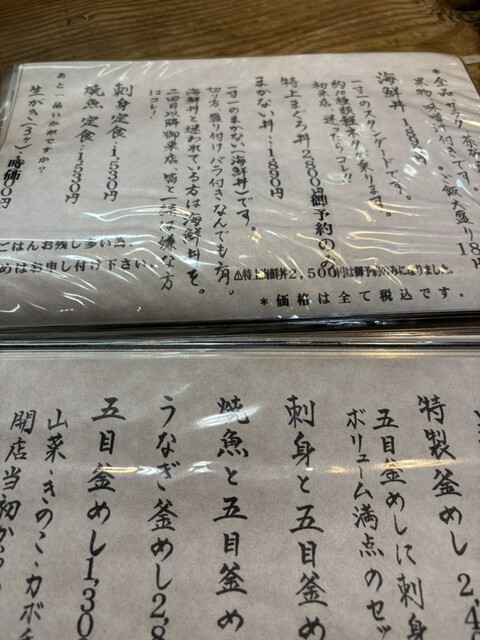 *全品、サラダ、茶碗
果物、味噌汁付きです。ご飯大盛り18
海鮮丼 1,890円
一寸一のスタンダードです。
約10種類程ネタが乗ります。
初来店、迷ったらコレ!!
特上まぐろ丼 2,800円御予約のみ
まかない丼 1,890円
一寸一のまかない(海鮮丼)です。
切り方、盛り付けバラ付きなんでも有。
海鮮丼と迷われている方は海鮮丼を。
二回目以降御来店、皆と一緒は嫌な方
はコレ!
刺身定食 1,530円
焼魚定食 1,530円
あと一品いかがですか?
生がき(3ケ)時価
ごはんお残し多い為、
めはお申し付け下さい。
△特上海鮮丼2,500円は御予約のみになりました。
*価格は全て税込です。
特製釜めし 2,4
五目釜めしに刺身
ボリューム満点のセッ
刺身と五目釜め
焼魚と五目釜め
うなぎ釜めし2,8
五目釜めし1,30
山菜・きのこ・カボチ
開店当初か